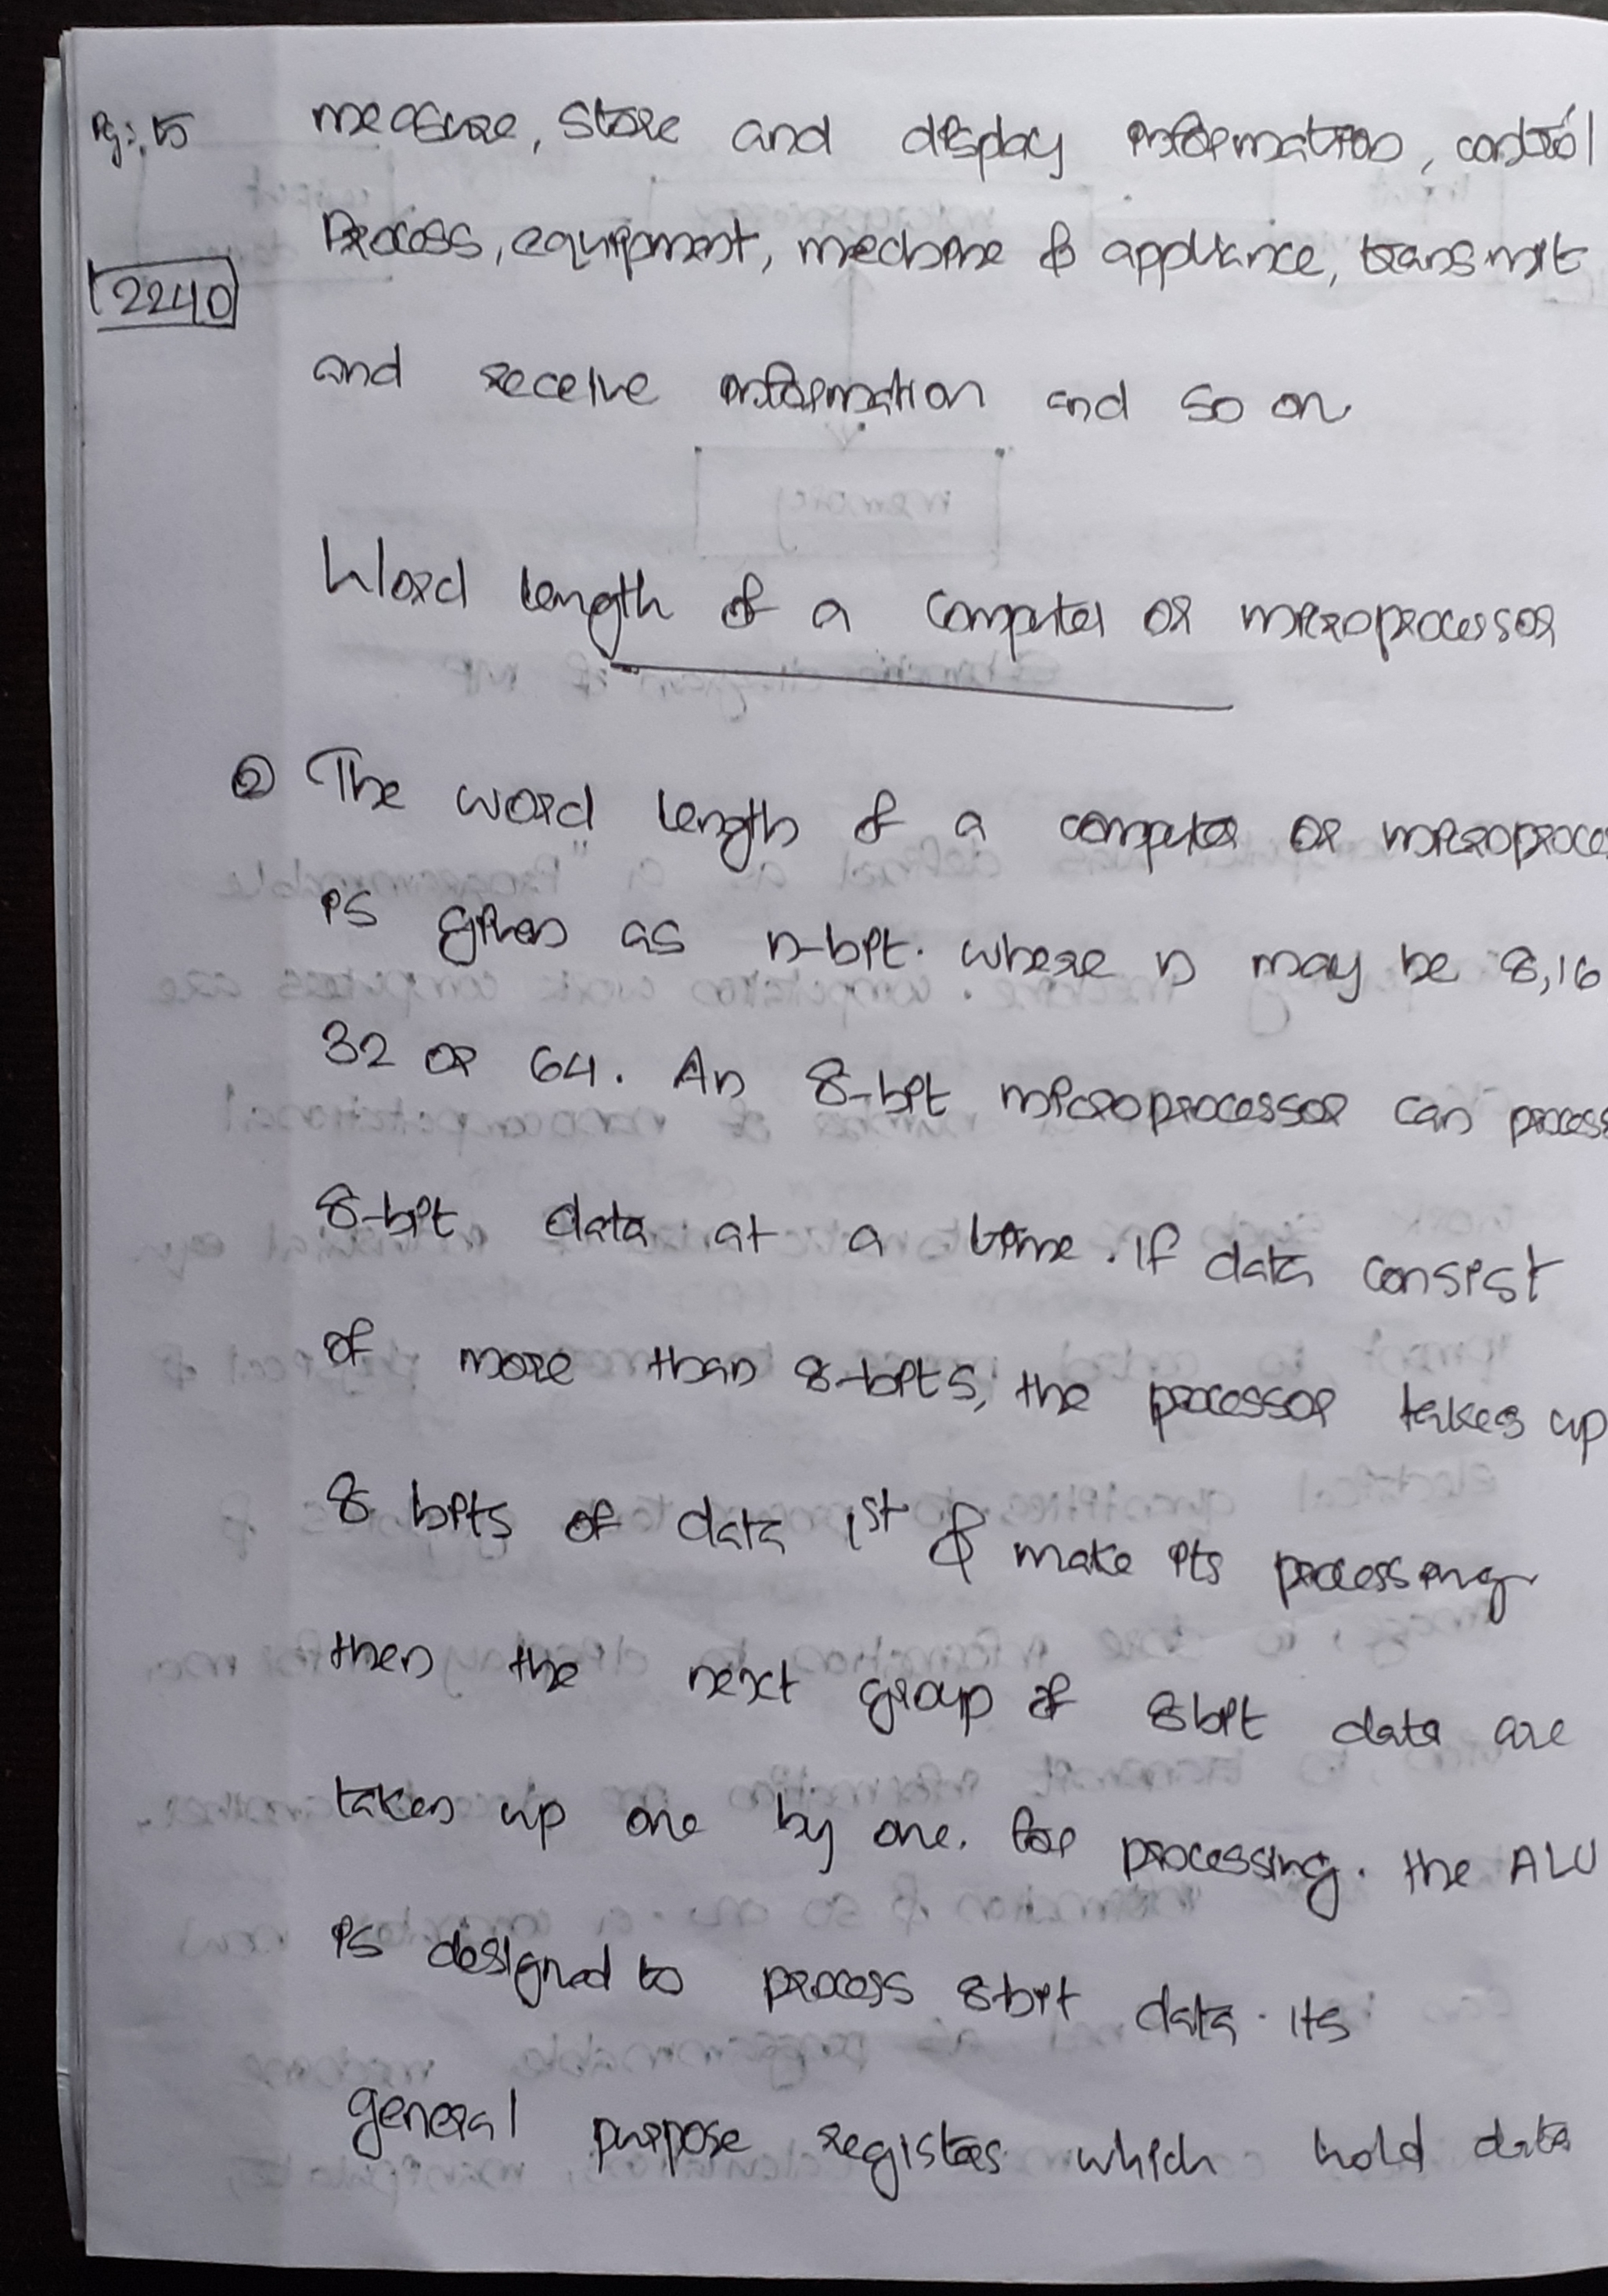 Pg:. 15
measure, store and display information, control
2240
Process, equipment, mechine & appliance, transmit
and receive information and so on
Word length of a computer or microprocessor
② The word length of a computer or microproces
is given as n-bit. where n may be 8,16
32 or 64. An 8-bit microprocessor can process
8-bit data at a time. If data consist
of more than 8-bits, the processor takes up
8 bits of data 1st & make its processing
then the next group of 8bit data are
taken up one by one. for processing. the ALU
is designed to process 8-bit data. its
general purpose registers which hold data